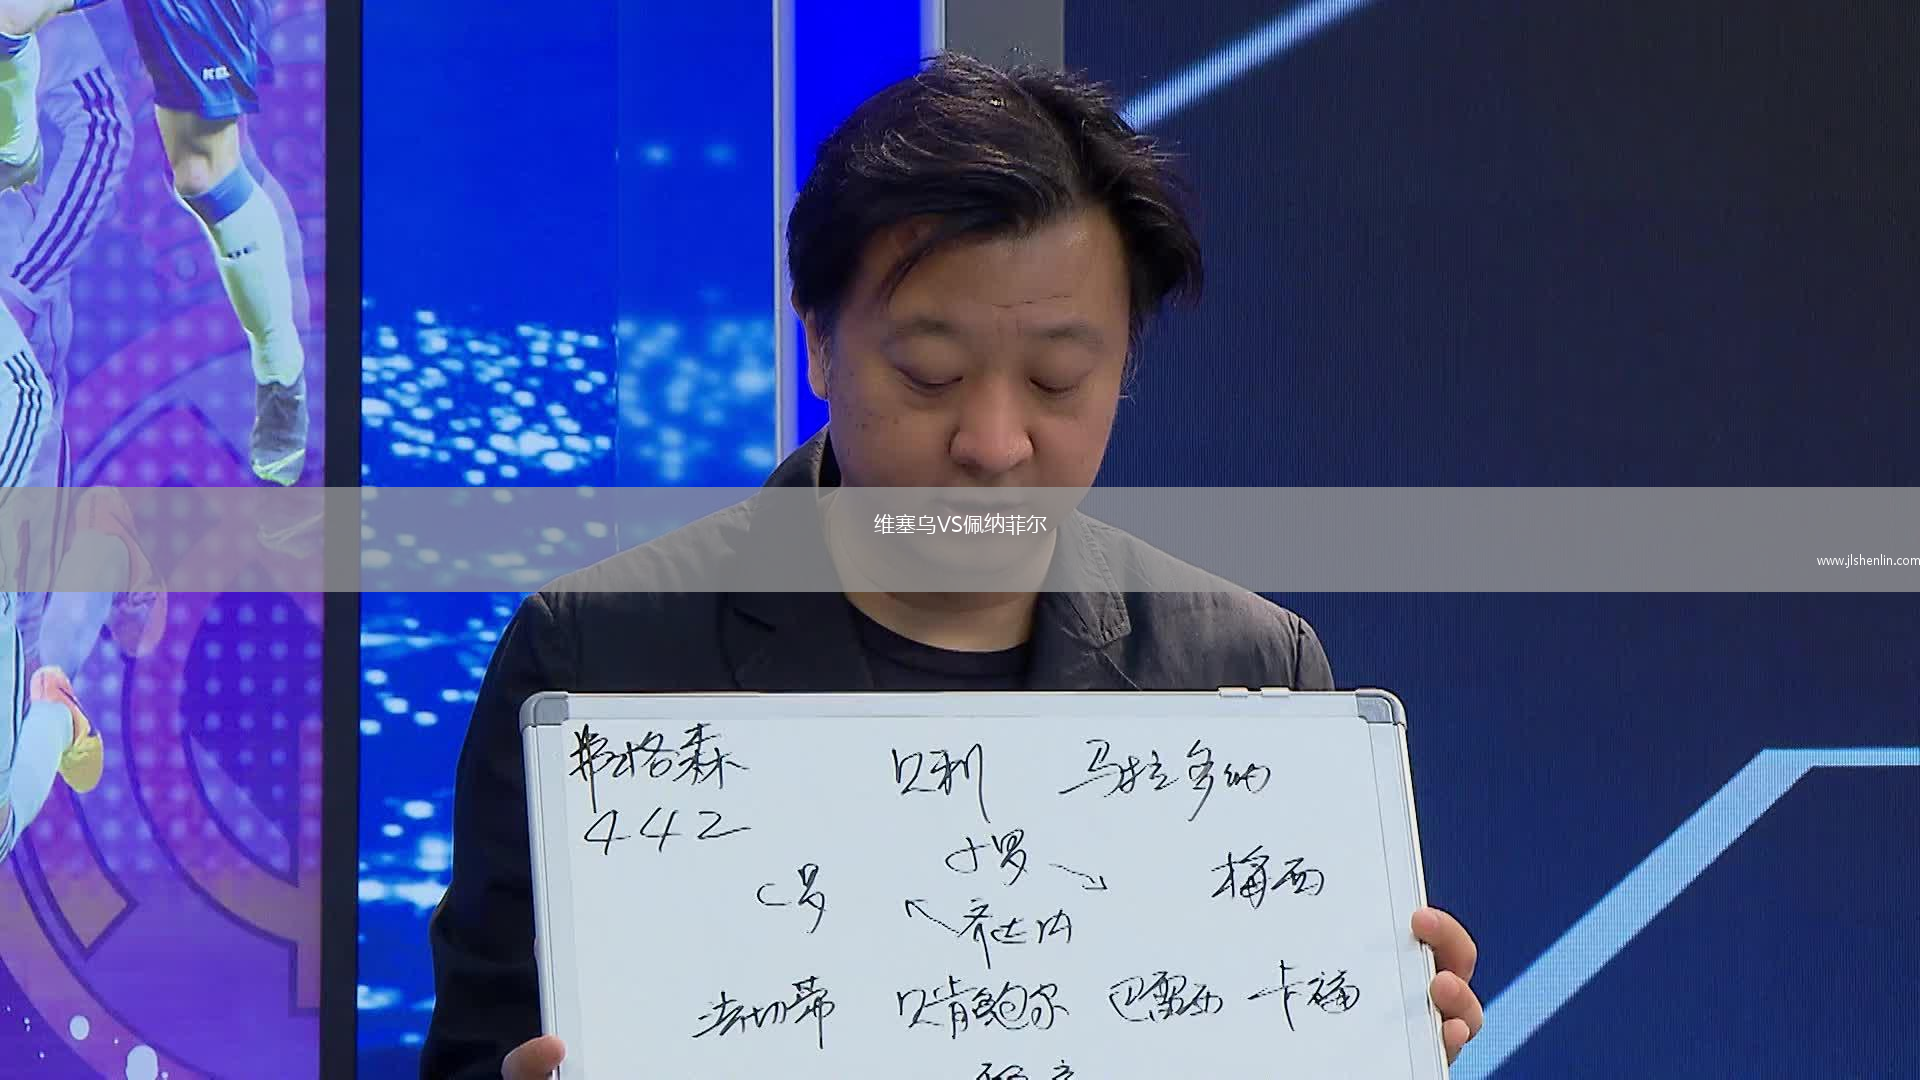 KEL
维塞乌VS佩纳菲尔
www.jlshenlin.com
弗格森 贝利 马拉多纳
442
C罗 小罗 梅西
齐达内
法切蒂 贝肯鲍尔 巴雷西 卡福